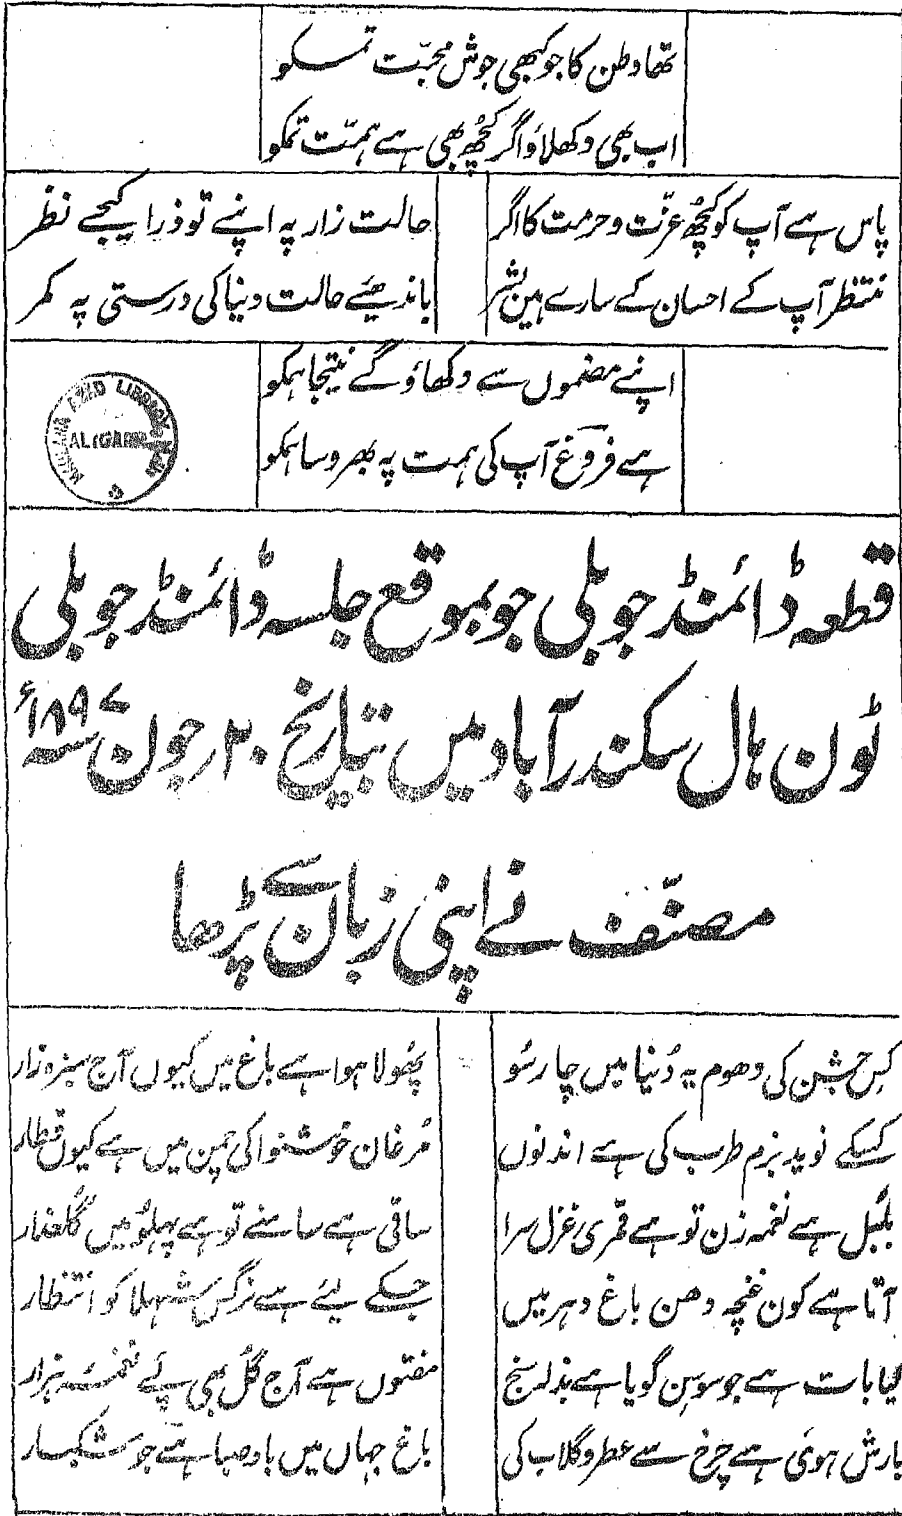 تھا وطن کا جو کبھی جوش محبّت تمسکو
اب بھی دکھلاؤ اگر کچُھ بھی ہے ہمّت تمکو
پاس ہے آپ کو کچُھ عزّت و حرمت کا اگر
حالت زار پہ اپنے تو ذرا کیجے نظر
منتظر آپ کے احسان کے سارے ہین بشر
باندھیئے حالت دنیا کی درستی پہ کمر
اپنے مضموں سے دکھاؤ گے نتیجا ہمکو
ہے فروغ آپ کی ہمت پہ بھروسا ہمکو
MAULANA AZAD LIBRARY
ALIGARH
قطعہ ڈائمنڈ جوبلی جو بموقع جلسہ ڈائمنڈ جوبلی
ٹون ہال سکندرآباد میں بتاریخ ۲۰ر جون سنہ ۱۸۹۷ء
مصنّف نے اپنی زبان سے پڑھا
کس جشن کی دھوم یہ دُنیا میں چار سُو
پھُولا ہوا ہے باغ میں کیوں آج سبزہ زار
کسکے نوید بزم طرب کی ہے اندنوں
مُرغان خوشنوا کی چمن میں ہے کیوں قطار
بلبُل ہے نغمہ زن تو ہے قمری غزل سرا
ساقی ہے سامنے تو ہے پہلُو میں گُلعذار
آتا ہے کون غنچہ دھن باغ دہر میں
جسکے لیئے ہے نرگس شہلا کو انتظار
کیا بات ہے جو سوسن گویا ہے بذلہ سنج
مفتوں ہے آج گُل بھی پئے نغمہ ہزار
بارش ہوئی ہے چرخ سے عطر و گلاب کی
باغ جہاں میں باد صبا ہے جو مشکبار